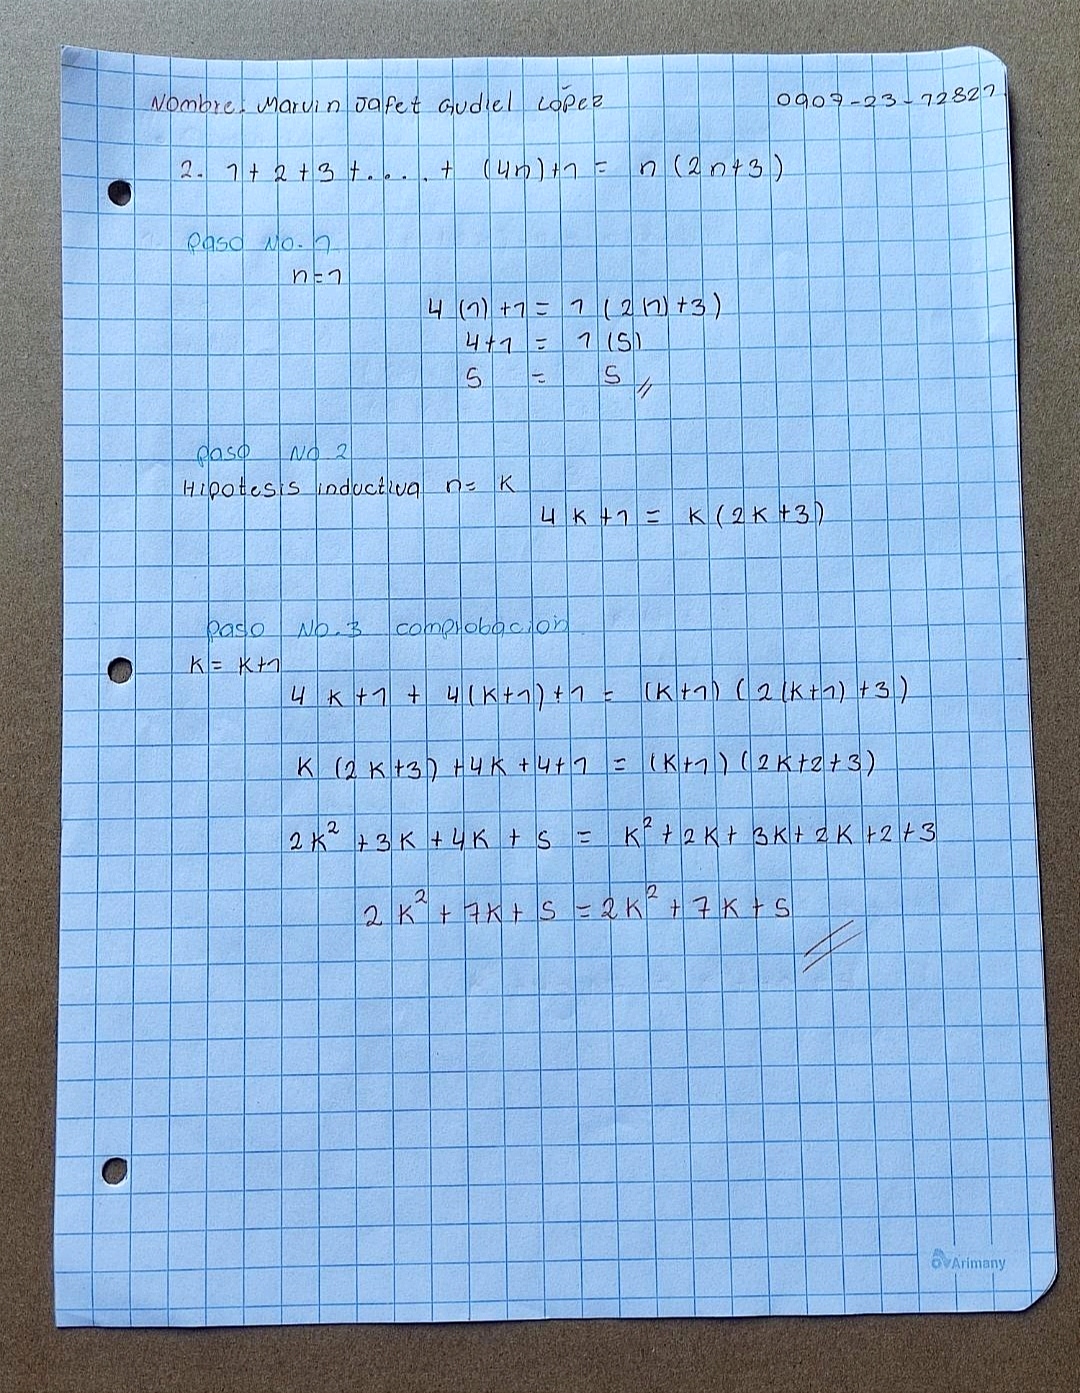 Nombre: Marvin Jafet Gudiel López 0907-23-12821
2. 1 + 2 + 3 + . . . . + (4n)+1 = n (2n+3)
Paso No. 1
n=1
4 (1) +1 = 1 (2(1)+3)
4+1 = 1 (5)
5 = 5 //
Paso No 2
Hipotesis inductiva n= K
4 K +1 = K (2K +3)
Paso No. 3 comprobacion
K = K+1
4 K +1 + 4(K+1)+1 = (K+1) (2(K+1) +3)
K (2K+3) +4K +4+1 = (K+1) (2K+2+3)
2K² +3K +4K + 5 = K² + 2K + 3K + 2K +2+3
2K² + 7K + 5 = 2K² + 7K + 5
Arimany